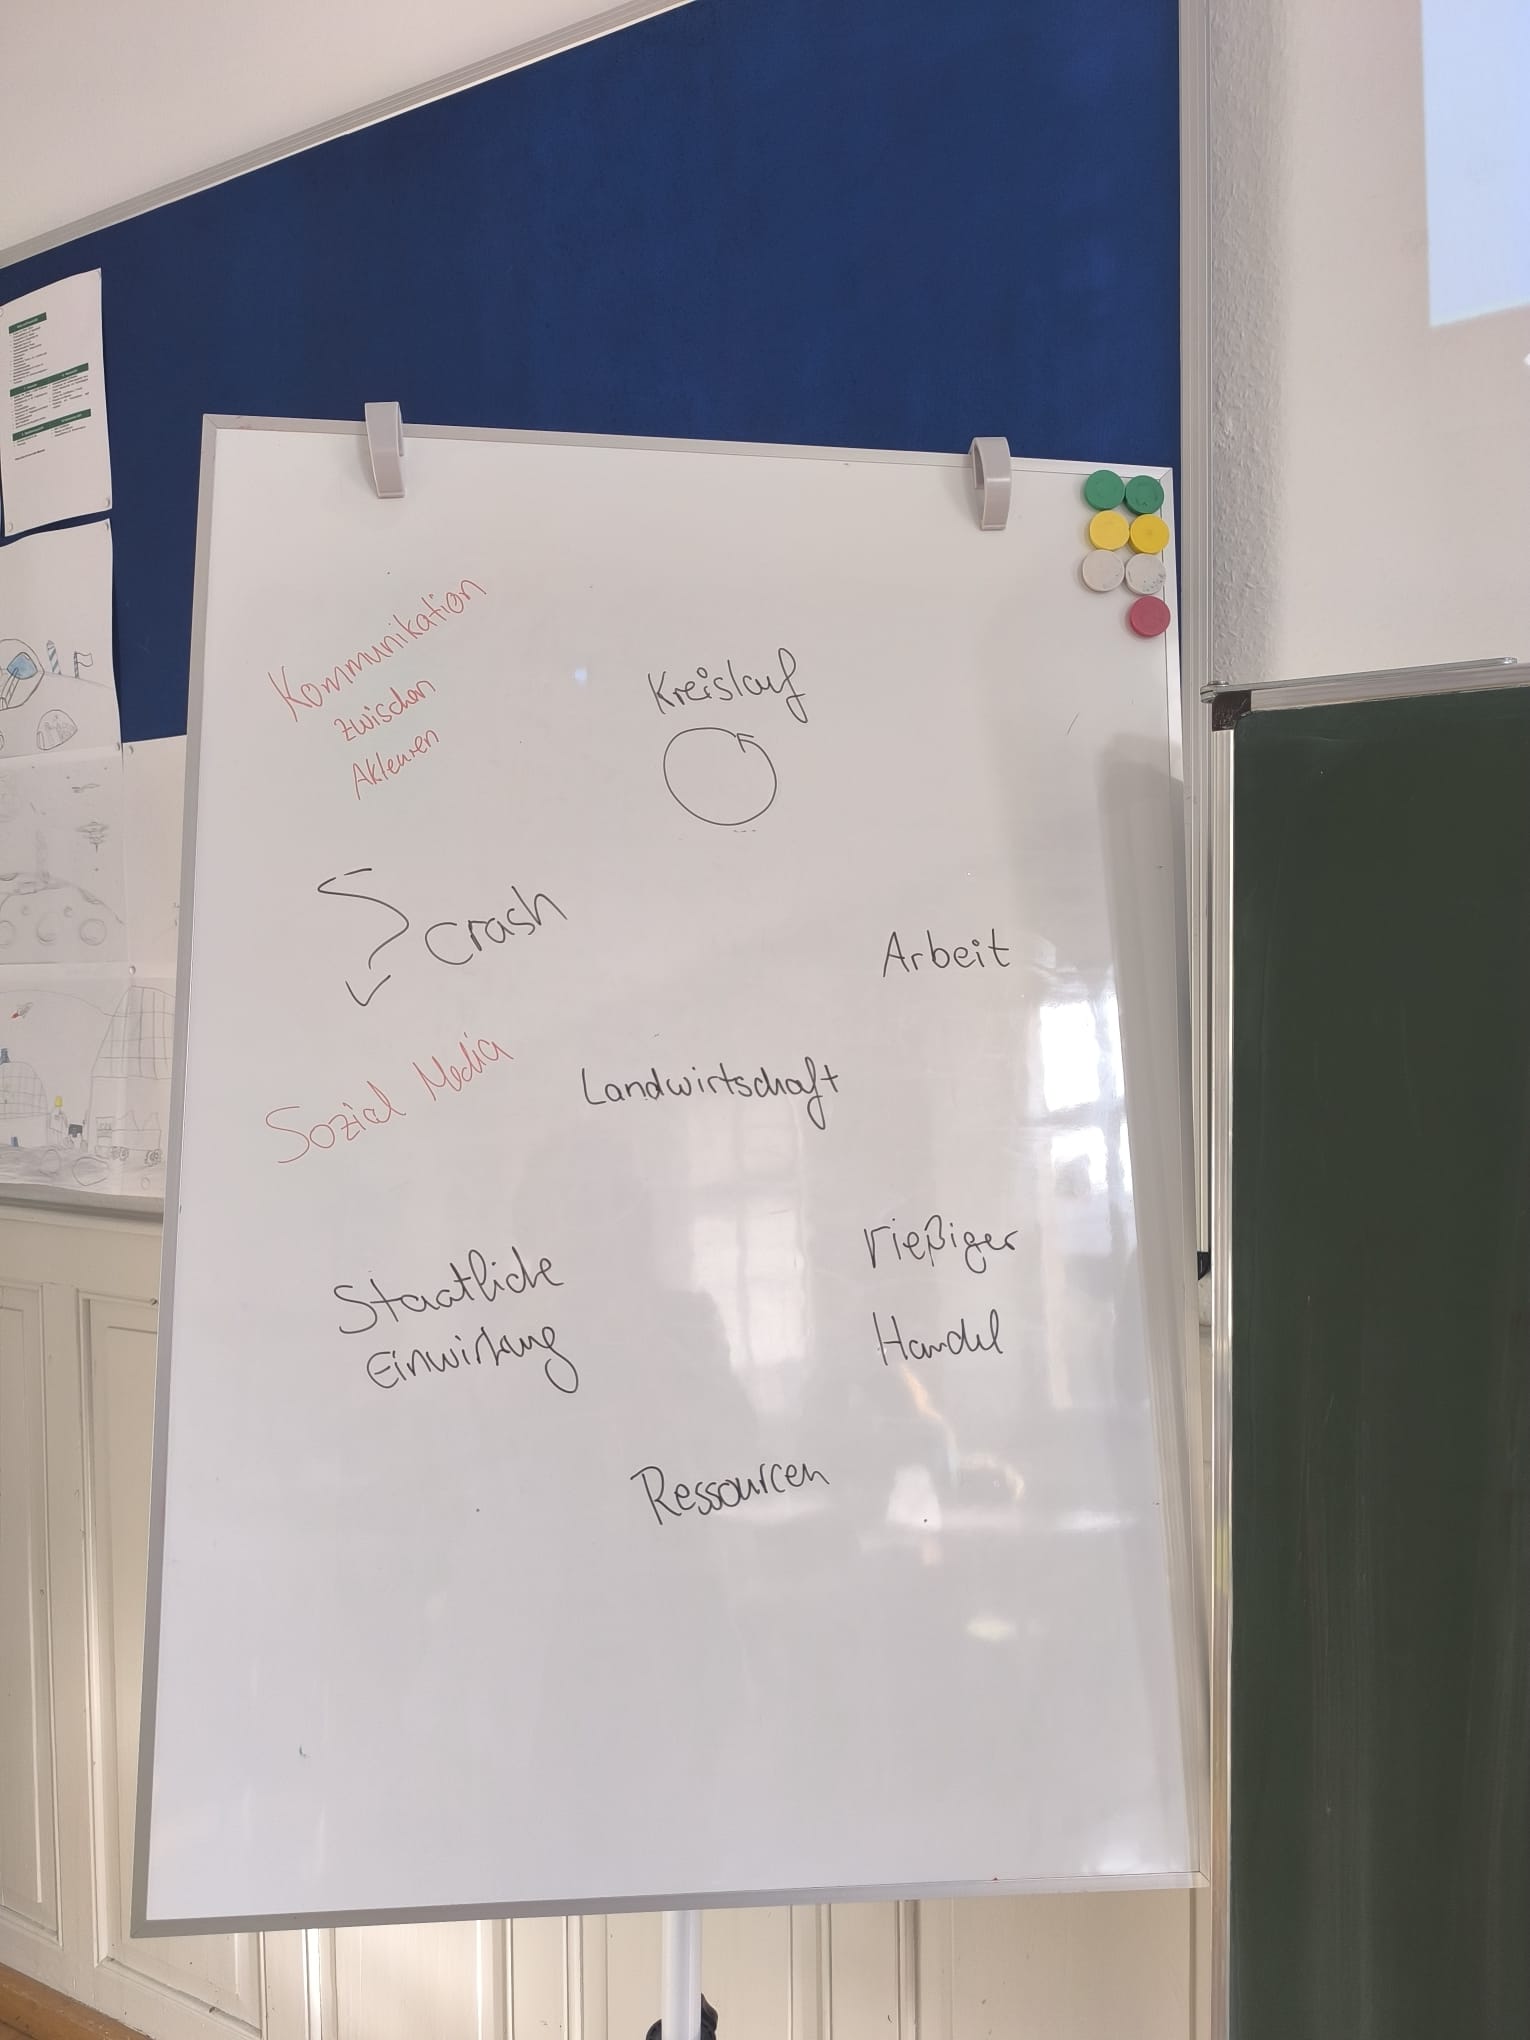 Kommunikation
zwischen
Akteuren
Kreislauf
Crash
Arbeit
Sozial Media
Landwirtschaft
Staatliche
Einwirkung
rießiger
Handel
Ressourcen